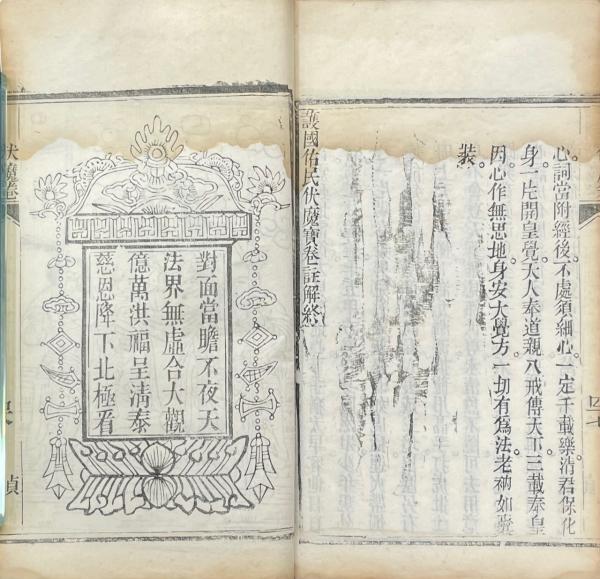 心詞當附經後不處須細心一定千載樂清君保化
身一片開皇覺大人奉道親八戒傳天下三載奉皇
因心作無思地身安大覺方一切有為法老衲如囊
裝
護國佑民伏魔寶卷註解終
對面當瞻不夜天
法界無虛合大觀
億萬洪福呈清泰
慈恩降下北極看
伏魔卷
貞